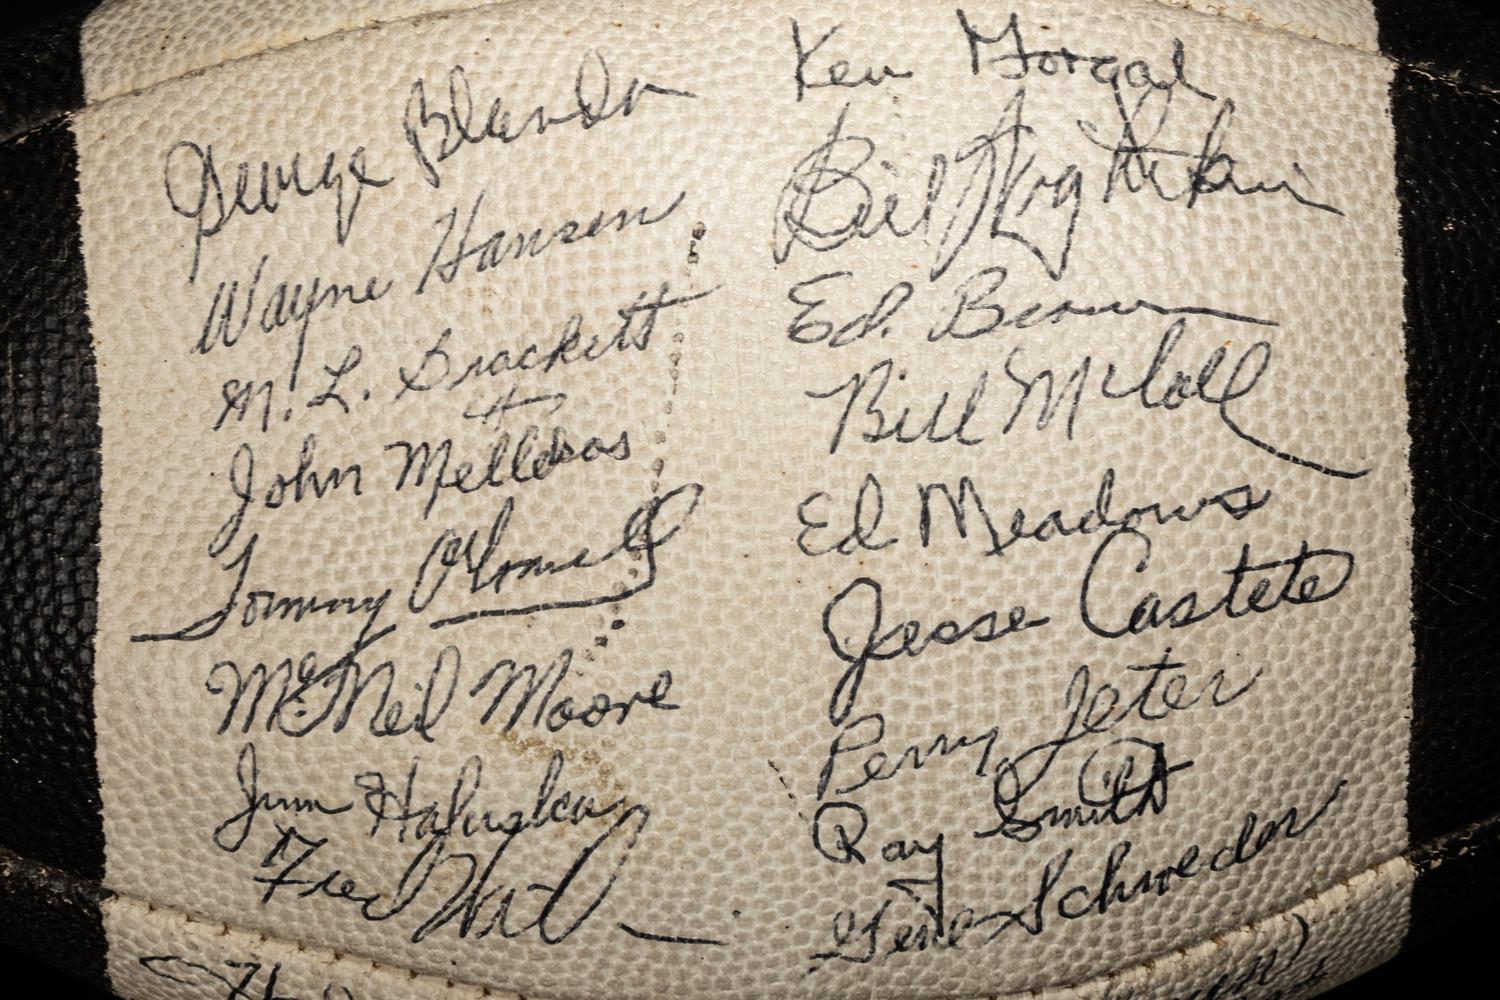 George Blanda
Wayne Hansen
M. L. Brackett
John Mellekas
Tommy O'Connell
McNeil Moore
Jim Haluska
Fred
Ken Gorgal
Bill
Ed. Brown
Bill McColl
Ed Meadows
Jesse Castete
Perry Jeter
Ray Smith
Gene Schroeder